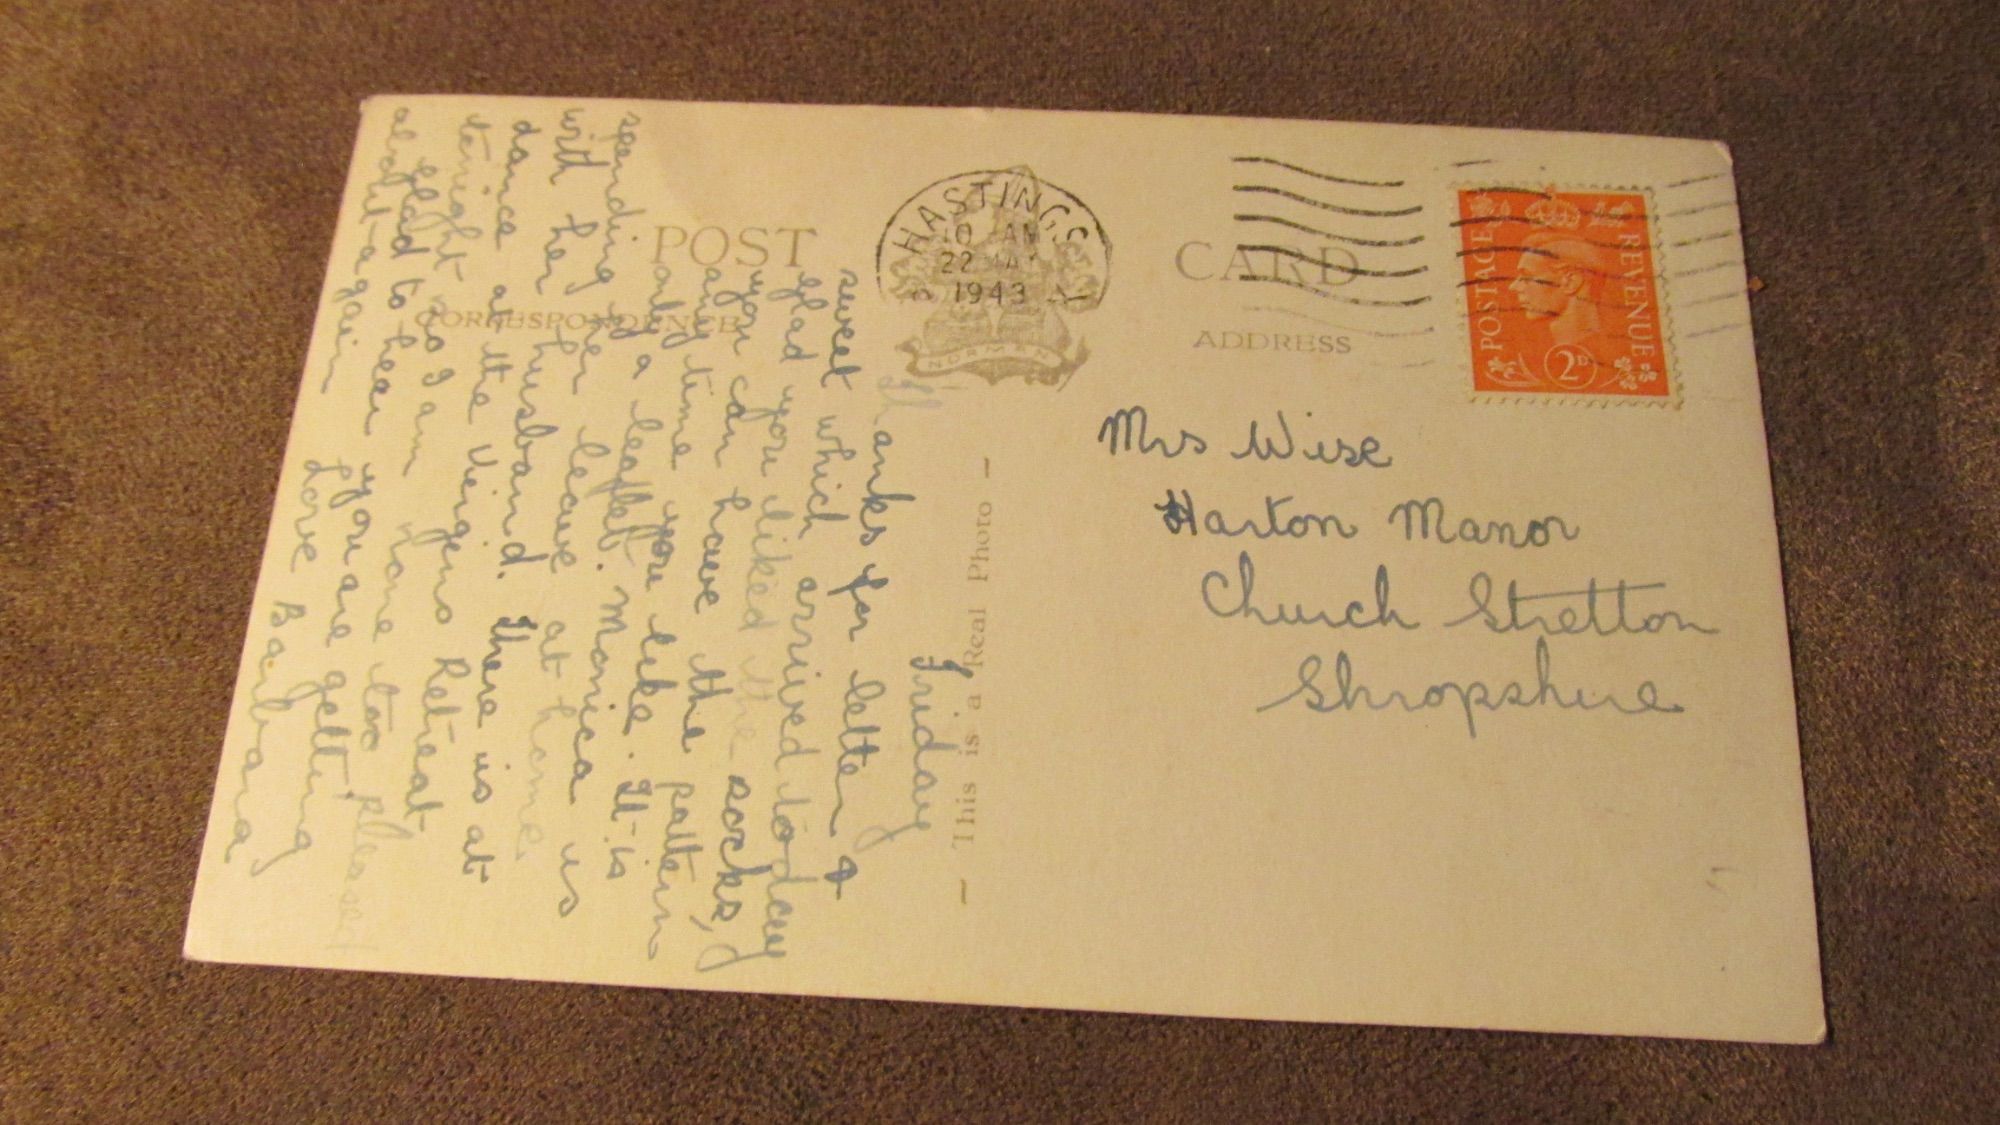 POST CARD
CORRESPONDENCE
ADDRESS
HASTINGS
10 AM
22 MAY
1943
NORMAN
POSTAGE REVENUE
2D
- This is a Real Photo -
Friday
Thanks for letter &
sweet which arrived today
Glad you liked the socks,
you can have the pattern
any time you like. It is
only a leaflet. Monica is
spending her leave at home
with her husband. There is at
dance at the Virgins Retreat
tonight so I am
glad to hear you are getting
about again
Love Barbara
Mrs Wise
Harton Manor
Church Stretton
Shropshire